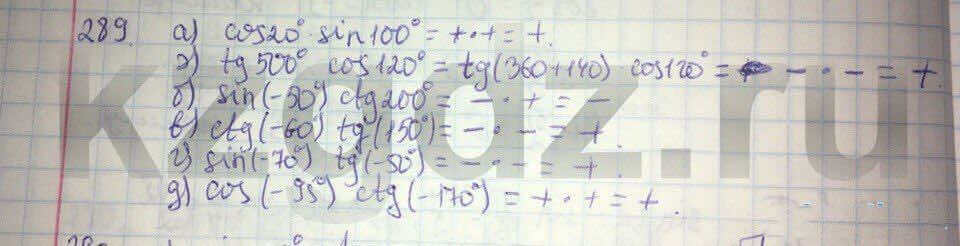 289. а) cos20° · sin100° = + · + = +.
э) tg 500° cos120° = tg(360+140) cos120° = - · - = +.
б) sin(-50°) ctg200° = - · + = -
в) ctg(-60°) tg(150°) = - · - = +.
г) sin(-70°) tg(-50°) = - · - = +.
д) cos(-95°) ctg(-170°) = + · + = +.
kzgdz.ru